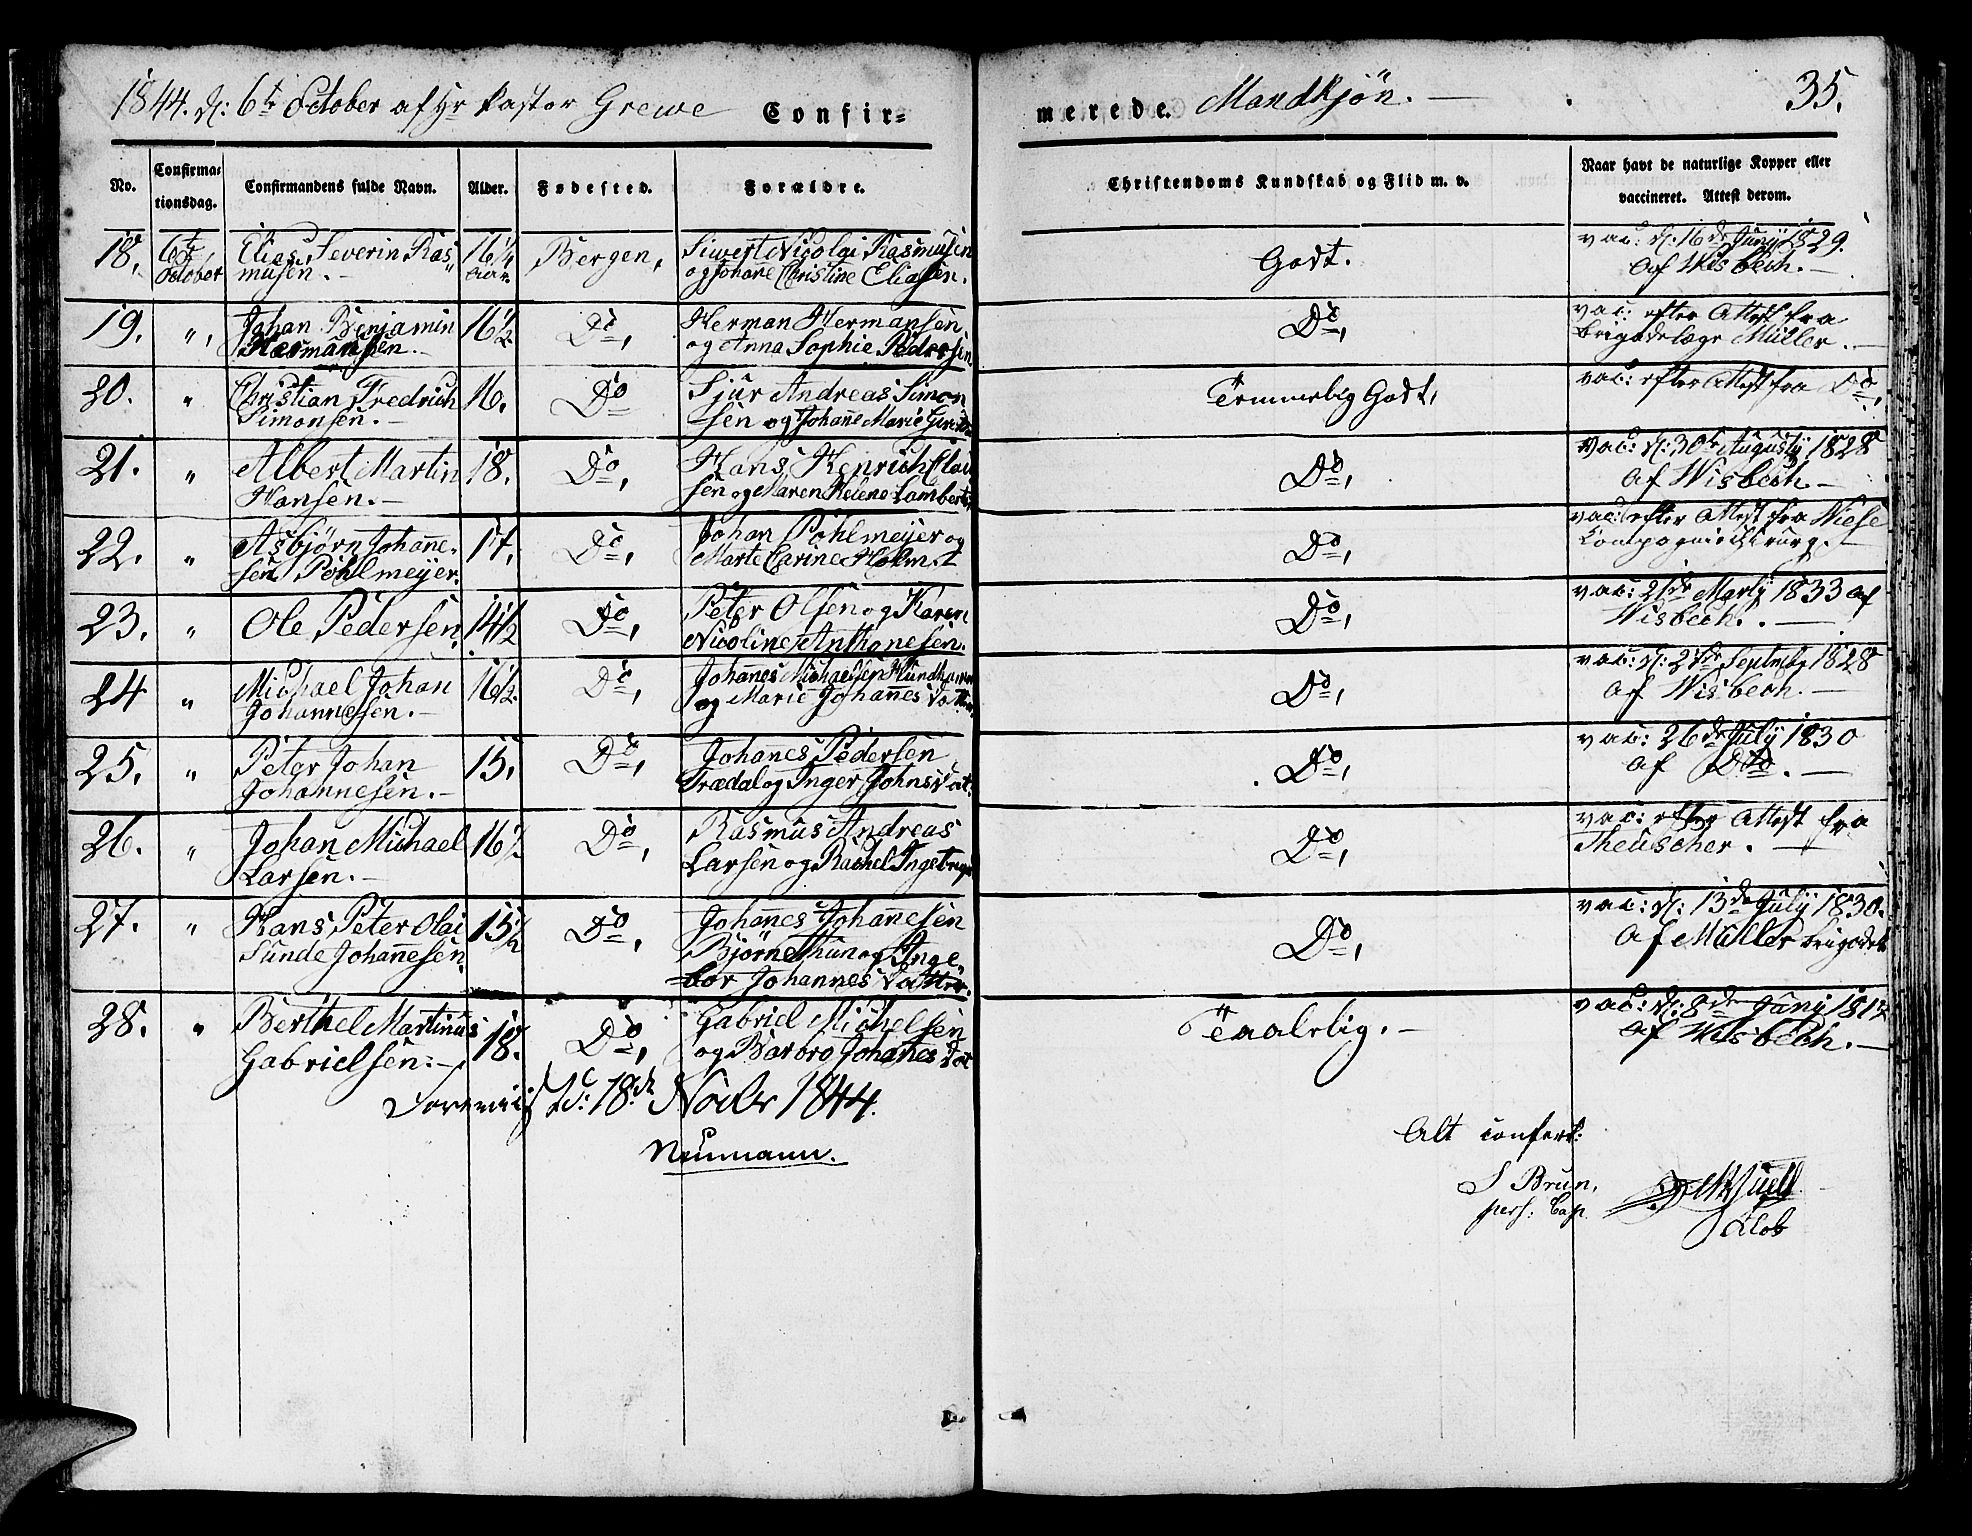 1844. d: 6te October af Hr Pastor Grewe Confir=
merede. Mandkjön. — 35.
No. Confirma= tionsdag. Confirmandens fulde Navn. Alder. Fødested. Forældre. Christendoms Kundskab og Flid m. v. Naar havt de naturlige Kopper eller vaccineret. Attest derom.
18. 6te October Elias Severin Ras"
musen. — 16 1/4 Aar. Bergen, Siwert Nicolai Rasmusen
og Johane Christine Eliasen. Godt. vac: d: 16de Juny 1829.
af Wisbech. —
19. " Johan Benjamin
Hermansen. — 16 1/2. Do, Herman Hermansen,
og Anna Sophie Pedersen Do, vac: efter Attest fra
Brigadelæge Müller. —
20. " Christian Fredrich
Simonsen. — 16. Do Sjur Andreas Simon
sen og Johane Marie Temmerlig Godt, vac: efter Attest fra Do,
21. " Albert Martin
Hansen. — 18. Do, Hans Henrich
sen og Maren Helene Lamberts Do, vac: d: 30te Augusty 1828
af Wisbech. —
22. " Asbjörn Johane=
sen Pohlmeyer. 17. Do, Johan Pohlmeyer og
Marte Carine Holm. Do, vac: efter Attest fra Wiese
Compagniechirurg. —
23. " Ole Pedersen, 14 1/2 Do, Peter Olsen og Karen
Nicoline Anthonesen. Do, vac: 21de Marty 1833 af
Wisbech. —
24 " Michael Johan
Johannesen. — 16 1/2. Do, Johanes Michaelsen
og Marie Johannes Do, vac: d: Septmbr 1828
af Wisbech. —
25. " Peter Johan
Johannesen. — 15. Do, Johanes Pedersen
Trædal og Inger Johns Dat. Do, vac: 26de July 1830
af Dito. —
26. " Johan Michael
Larsen. — 16 Do, Rasmus Andreas
Larsen og Rachel Do, vac: efter Attest fra
Theuscher. —
27. " Hans Peter Olai
Sunde Johanesen, 15 1/2 Do, Johanes Johanesen
Björnethun og Inge"
bor Johannes Datter. Do, vac: d: 13de July 1830.
af Müller
28. " Berthel Martinus
Gabrielsen. — 18. Do, Gabriel Michelsen
og Barbro Johanes Dat Taalelig. — vac: d: 8de Juny
af Wisbech. —
18de Nvbr 1844.
Neumann.
Alt confert:
J Brun,
pers: Cap.